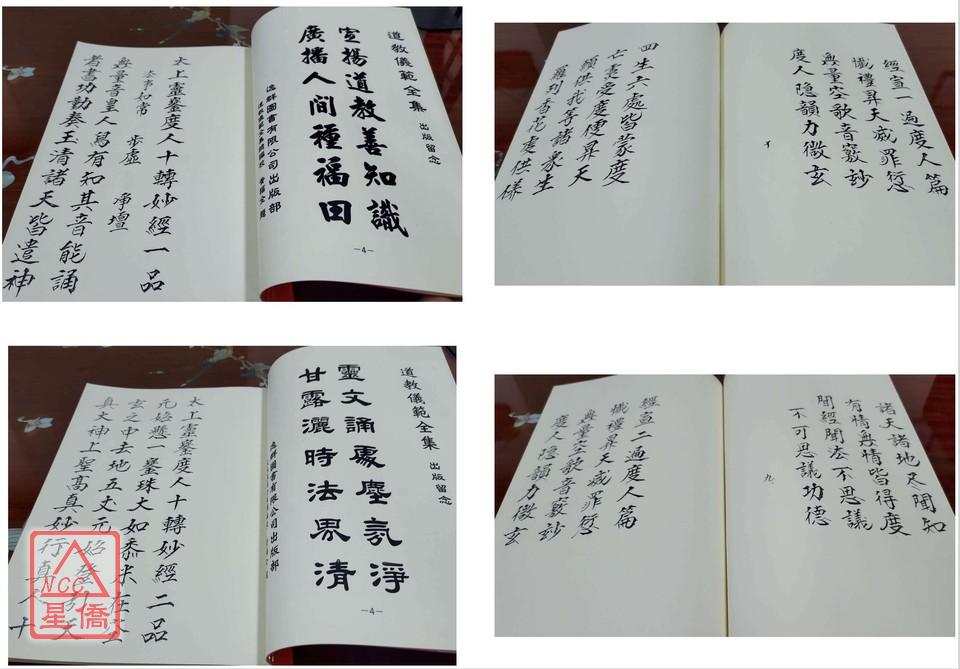 道教儀範全集 出版留念
宣揚道教善知識
廣播人間種福田
逸群圖書有限公司出版部
—4—
太上靈寶度人十轉妙經一品
冬事如常 步虛 淨壇
無量音皇人焉有知其音能誦
者書功勳奏玉清諸天皆遣神
經宣一遍度人篇
懺禮昇天滅罪愆
無量空歌音竅妙
度人隱韻力微玄
十
四生六處皆蒙度
亡靈受度便昇天
願供我等諸衆生
羅列香花虔供養
道教儀範全集 出版留念
靈文誦處塵氛淨
甘露灑時法界清
逸群圖書有限公司出版部
—4—
太上靈寶度人十轉妙經二品
元始懸一寶珠大如黍米在空
玄之中去地五丈元始登引天
真大神上聖高真妙行真人十
NCC
星僑
諸天諸地尽聞知
有情無情皆得度
聞經聞法不思議
不可思議功德
九
經宣二遍度人篇
懺禮昇天滅罪愆
無量空歌音竅妙
度人隱韻力微玄